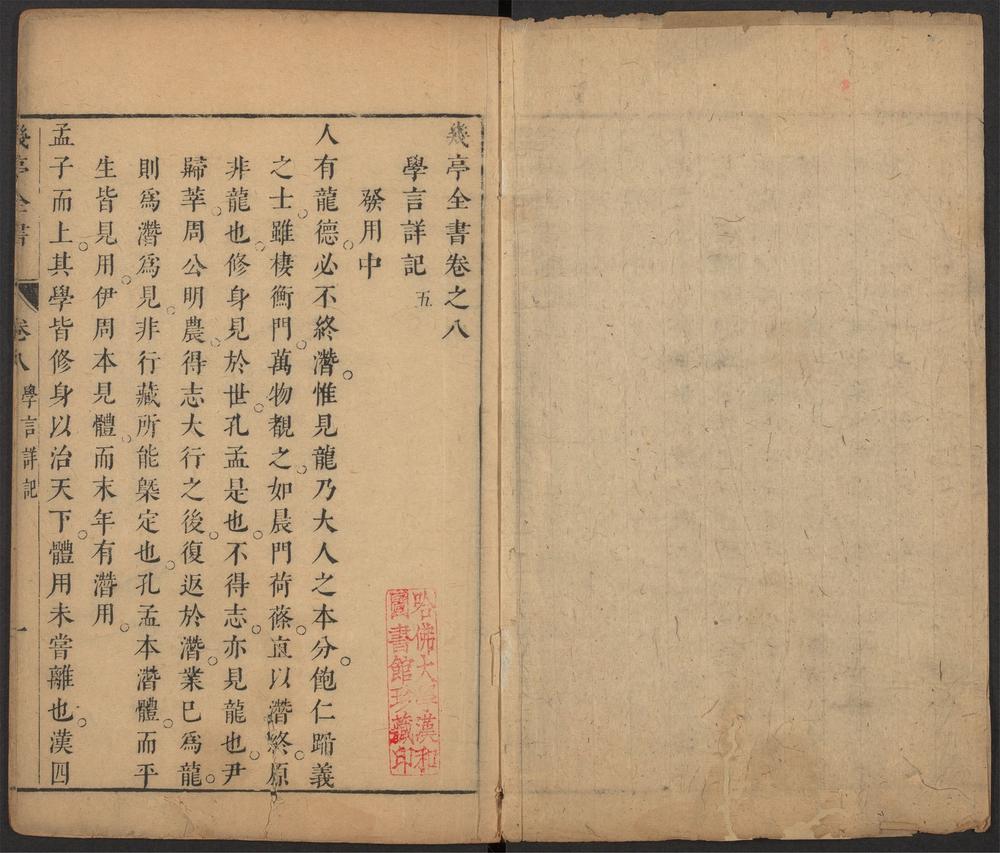 幾亭全書卷之八
學言詳記 五
發用中
人有龍德必不終潛惟見龍乃大人之本分飽仁蹈義
之士雖棲衡門萬物覩之如晨門荷蓧直以潛終原
非龍也修身見於世孔孟是也不得志亦見龍也尹
歸莘周公明農得志大行之後復返於潛業已爲龍
則爲潛爲見非行藏所能槩定也孔孟本潛體而平
生皆見用伊周本見體而末年有潛用
孟子而上其學皆修身以治天下體用未嘗離也漢四
幾亭全書 卷八 學言詳記 一
哈佛大學漢和
圖書館珍藏印